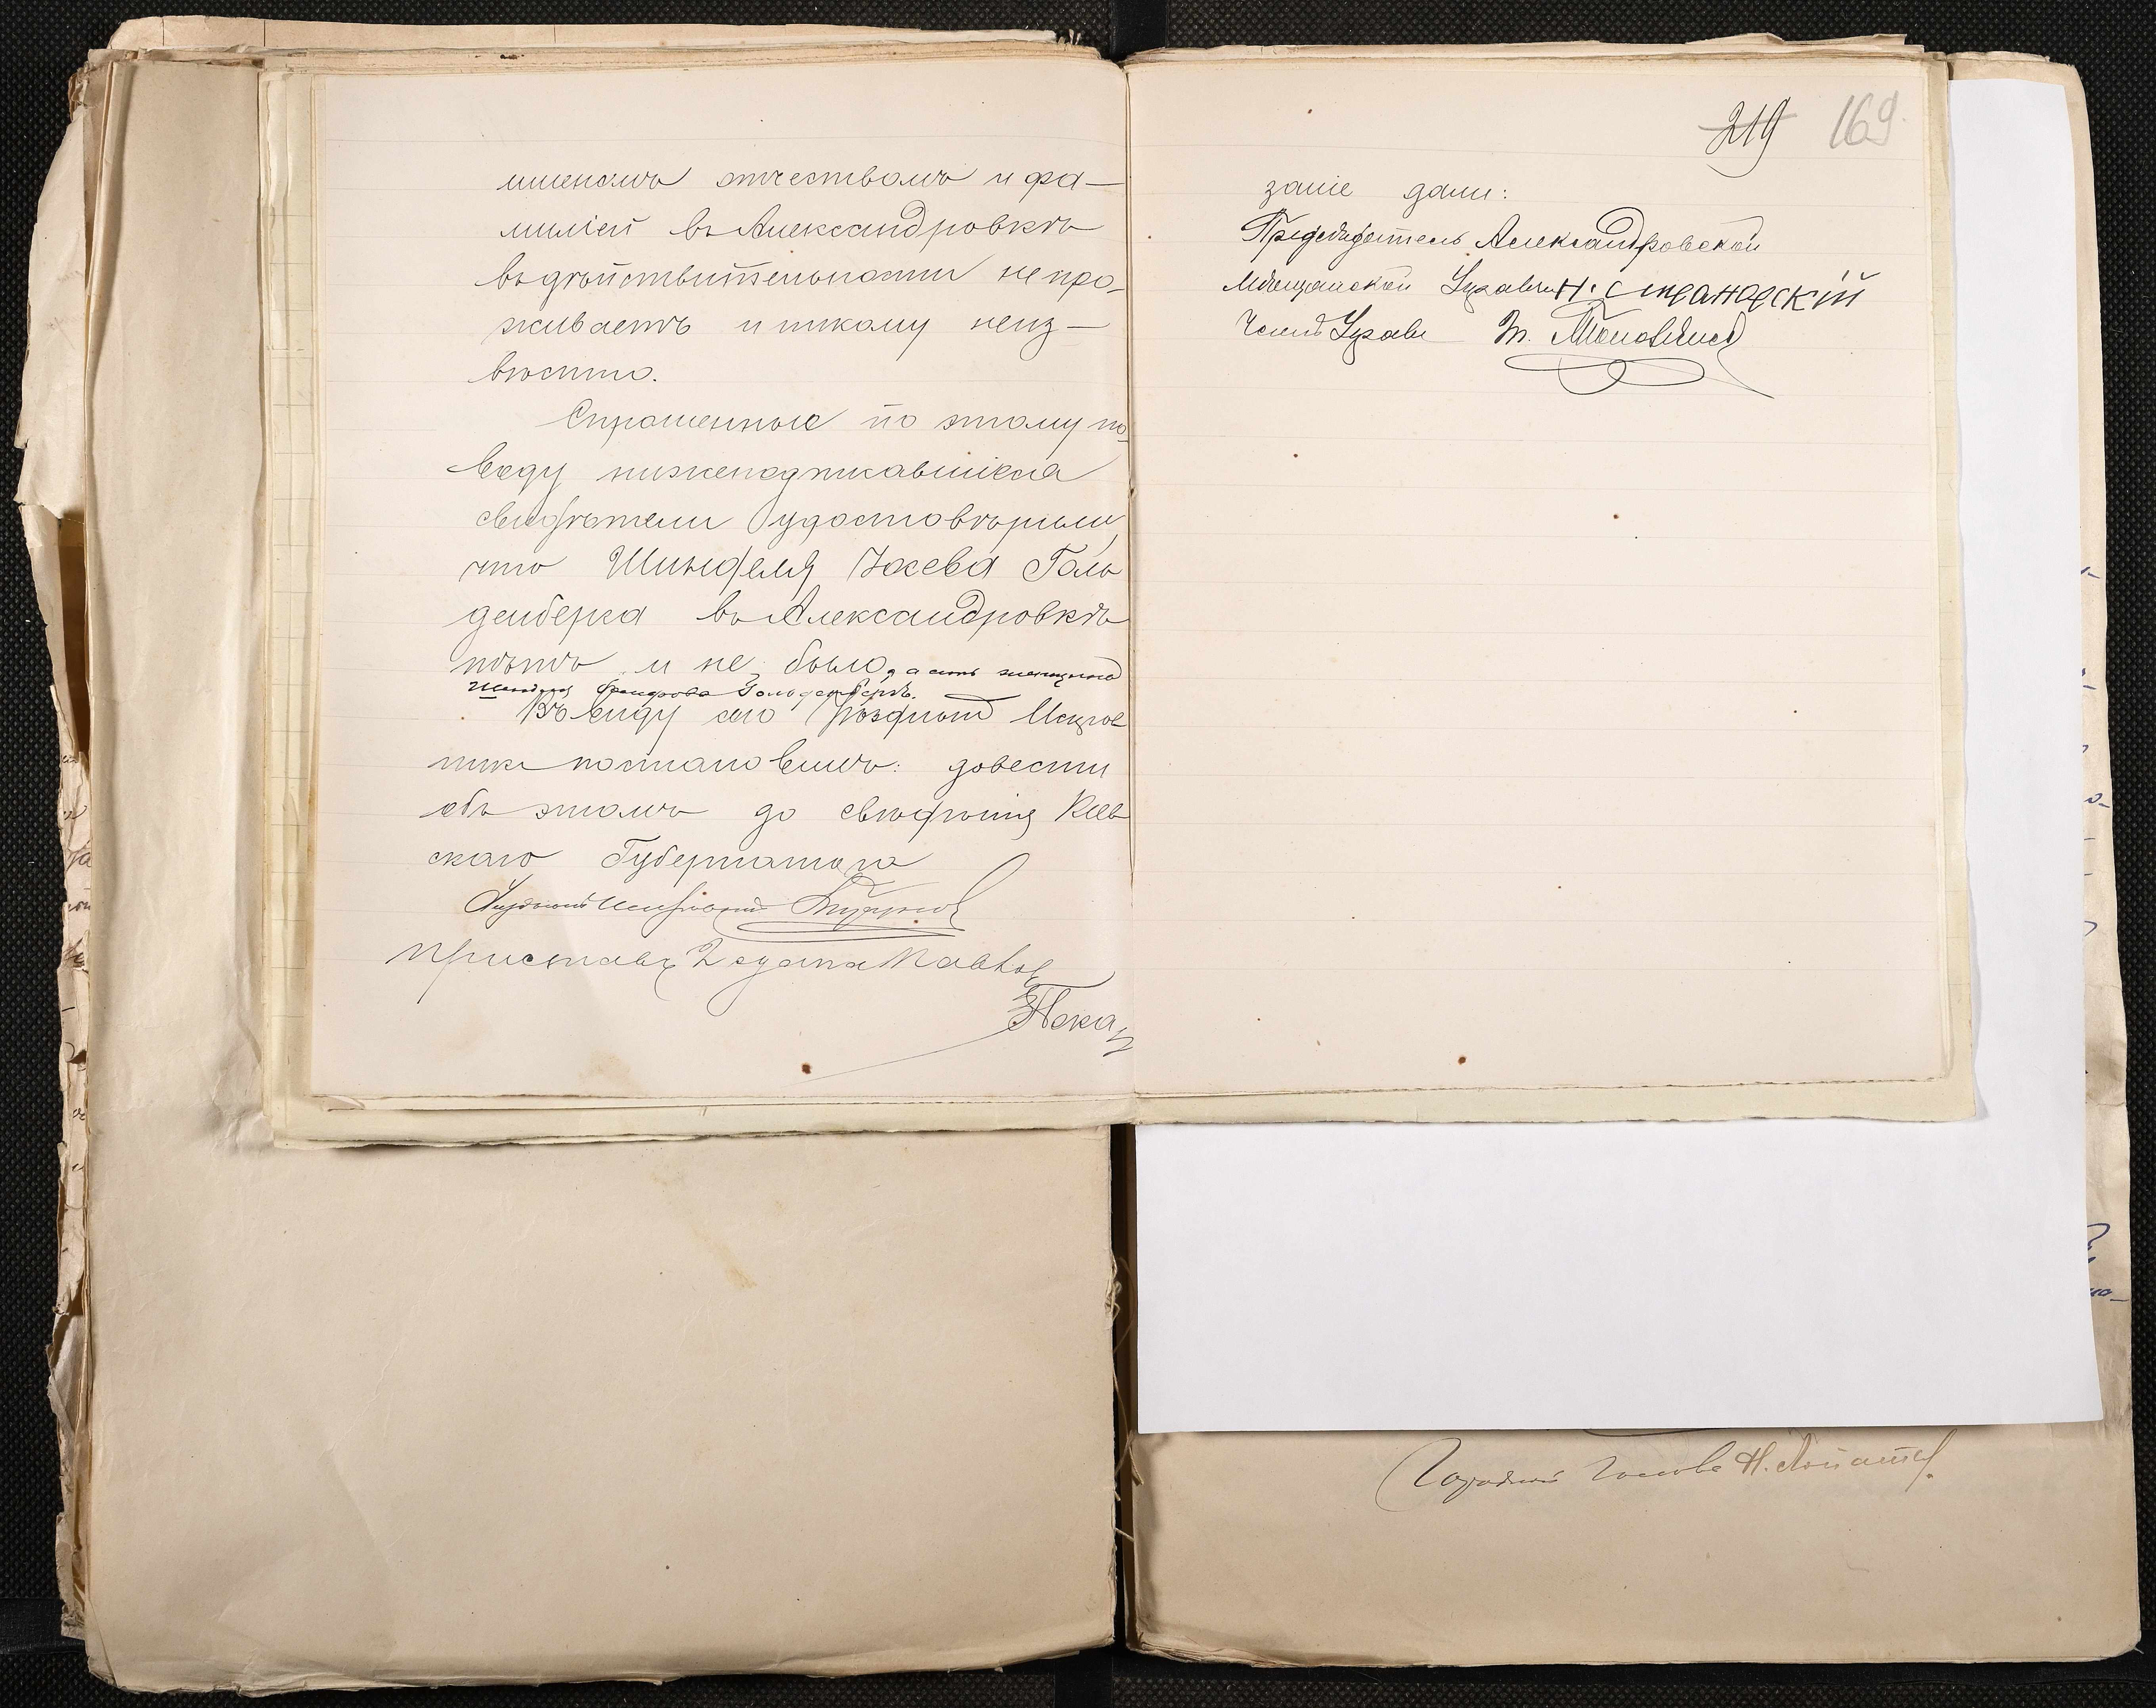 именемъ отчествомъ и фа-
миліей въ Александровкѣ
въ дѣйствительности не про-
живаетъ и никому неиз-
вѣстно.
Спрошенные по этому по-
воду нижеподписавшіеся
свидѣтели удостовѣрили,
что Шинделя ІосеваГоль
денберга въ Александровкѣ
нѣтъ и не было, а есть женщина
Шендля Гольденбергъ.
Въ виду сего Уѣздный Исправ
никъ постановилъ: довести
объ этомъ до свѣдѣнія Кіев
скаго Губернатора
Уѣздный Исправникъ
Приставъ 2 стана
Пока
219 169
заніе дали:
Предсѣдатель Александровской
Мѣщанской Управы Н.
Членъ Управы
Городской Голова Н.